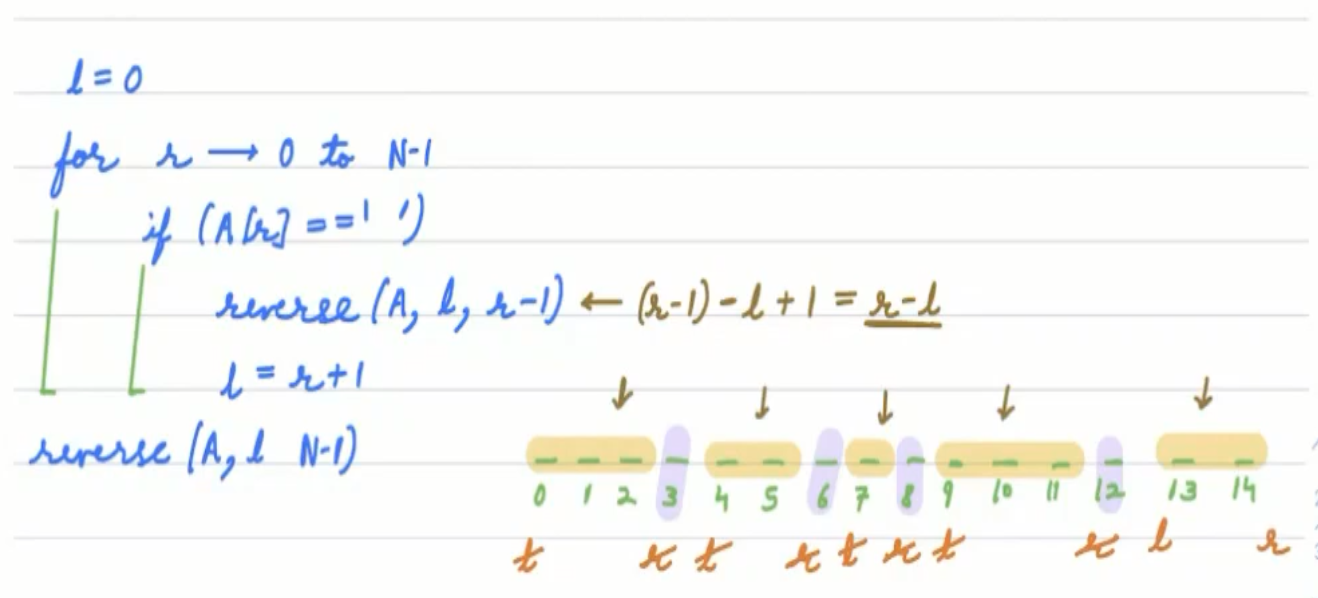 l = 0
for r → 0 to N-1
if (A[r] == ' ')
reverse (A, l, r-1) ← (r-1) - l + 1 = r-l
l = r+1
reverse (A, l N-1)
0 1 2 3 4 5 6 7 8 9 10 11 12 13 14
l r l r l r l r l r